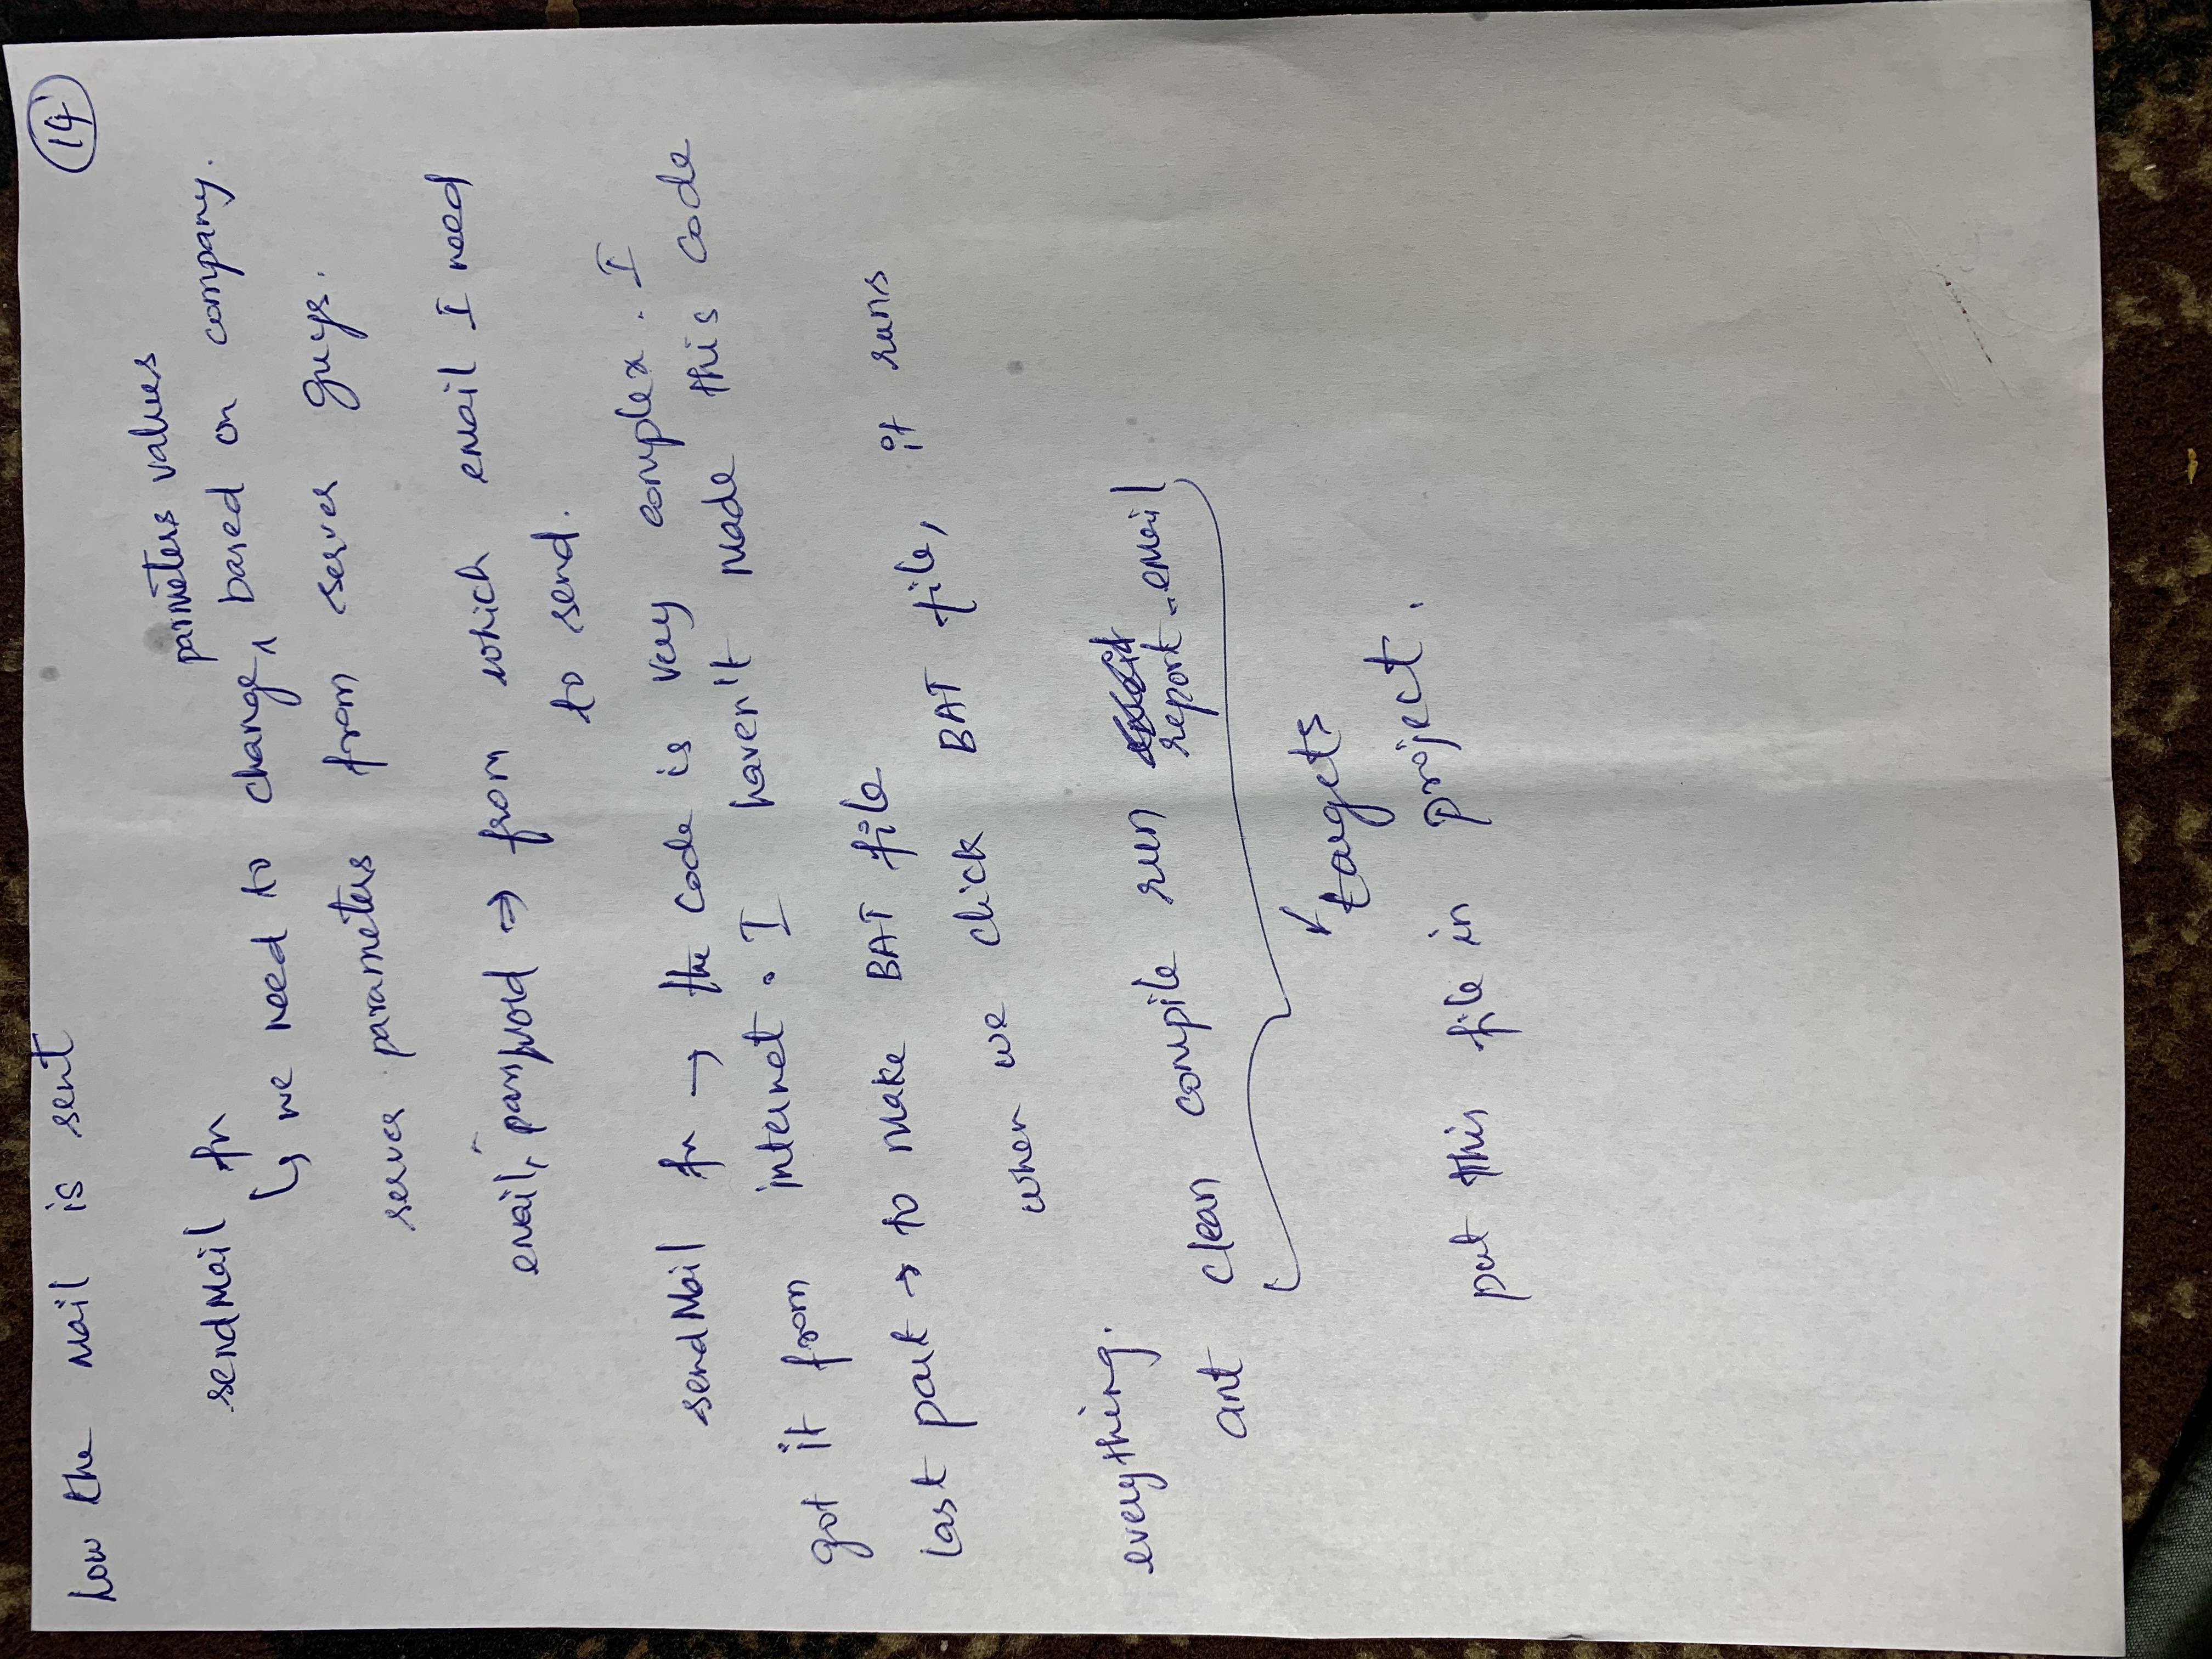 how the Mail is sent
14
sendMail fn
parmeters values
↳ we need to change, ^ based on company.
server parameters from server guys.
email, password ⇒ from which email I need
to send.
sendMail fn → the code is very complex. I
got it from internet. I haven't made this code
last part → to make BAT file
when we click BAT file, it runs
everything.
ant clean compile run report-email
↓ targets
put this file in project.